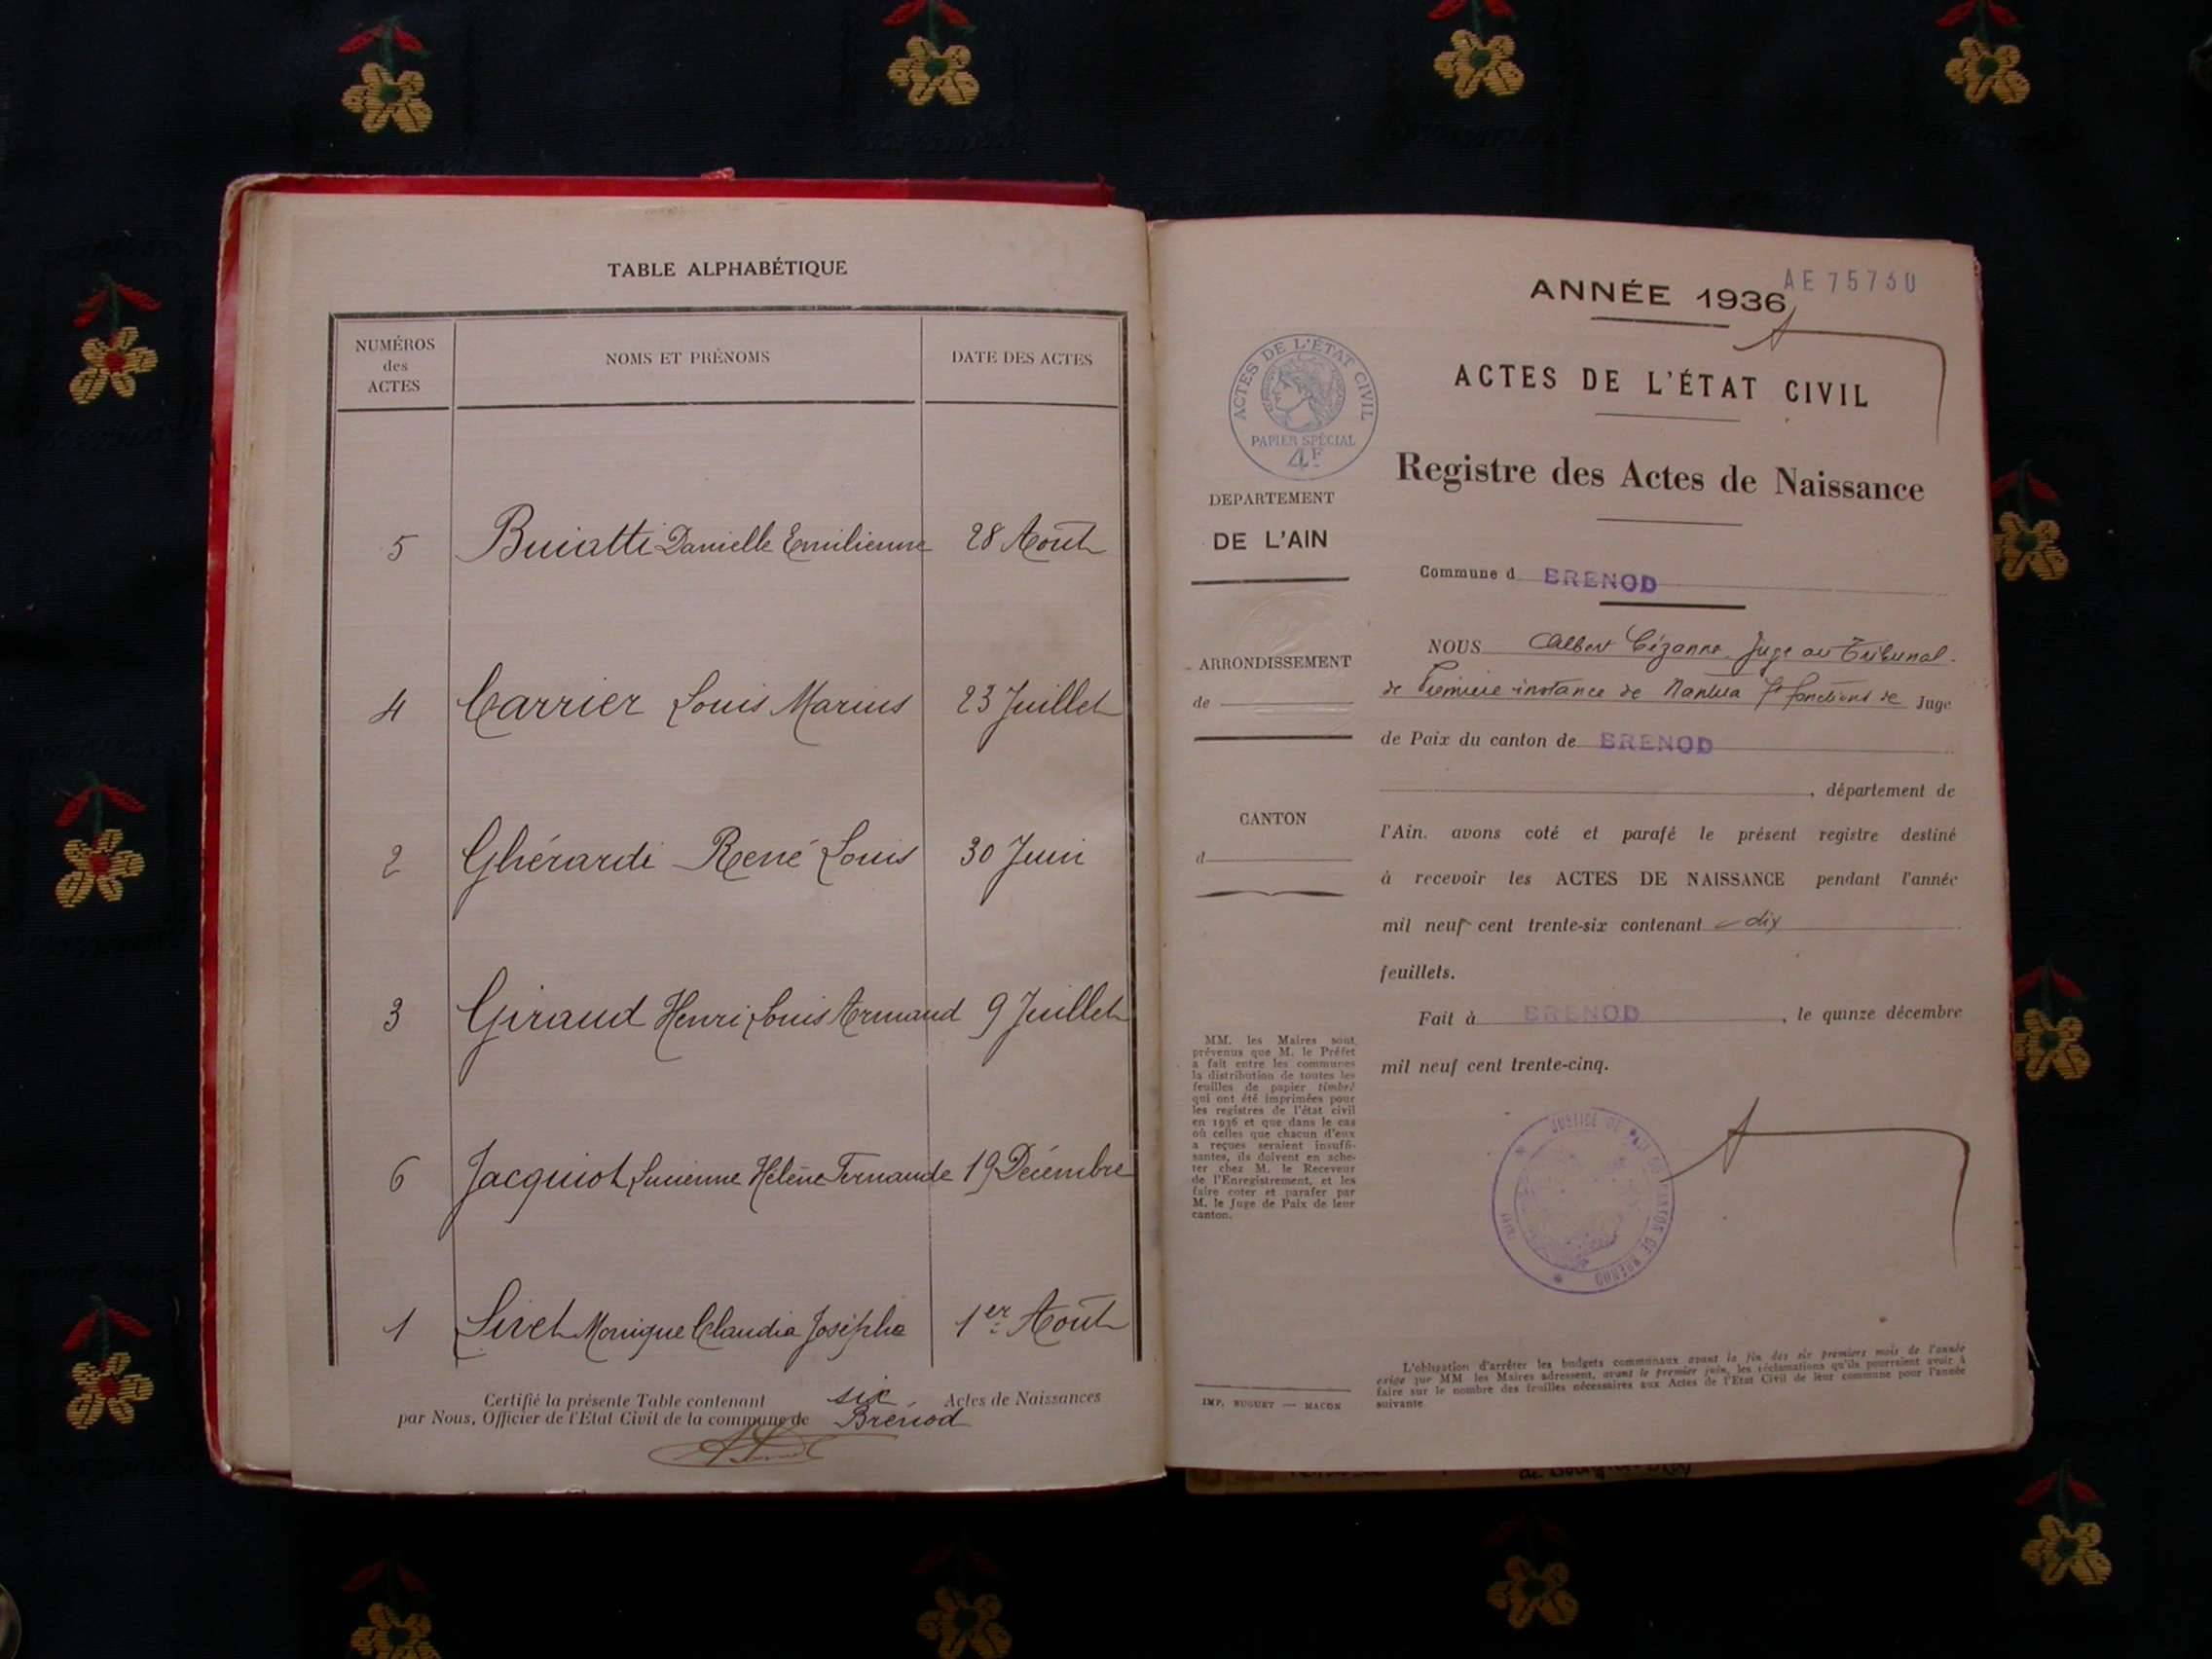 TABLE ALPHABÉTIQUE
NUMÉROS
des
ACTES
NOMS ET PRÉNOMS
DATE DES ACTES
5 Buiatti Danielle Emilienne 28 Août
4 Carrier Louis Marius 23 Juillet
2 Ghérardi René Louis 30 Juin
3 Giraud Henri Louis Armand 9 Juillet
6 Jacquiot Lucienne Hélène Fernande 19 Décembre
1 Livet Monique Claudia Josèphe 1er Août
Certifié la présente Table contenant six Actes de Naissances
par Nous, Officier de l'Etat Civil de la commune de Brénod
ANNÉE 1936
AE 75730
ACTES DE L'ÉTAT CIVIL
PAPIER SPÉCIAL
4F
DEPARTEMENT
DE L'AIN
ARRONDISSEMENT
de
CANTON
d
MM. les Maires sont
prévenus que M. le Préfet
a fait entre les communes
la distribution de toutes les
feuilles de papier timbré
qui ont été imprimées pour
les registres de l'état civil
en 1936 et que dans le cas
où celles que chacun d'eux
a reçues seraient insuffi-
santes, ils doivent en ache-
ter chez M. le Receveur
de l'Enregistrement, et les
faire coter et parafer par
M. le Juge de Paix de leur
canton.
IMP. BUGUET — MACON
ACTES DE L'ÉTAT CIVIL
Registre des Actes de Naissance
Commune d BRENOD
NOUS Albert Cézanne Juge au Tribunal
de Première instance de Nantua fonctions de Juge
de Paix du canton de BRENOD
, département de
l'Ain, avons coté et parafé le présent registre destiné
à recevoir les ACTES DE NAISSANCE pendant l'année
mil neuf cent trente-six contenant dix
feuillets.
Fait à BRENOD, le quinze décembre
mil neuf cent trente-cinq.
JUSTICE DE PAIX DU CANTON DE BRENOD
(AIN)
L'obligation d'arrêter les budgets communaux avant la fin des six premiers mois de l'année
exige que MM les Maires adressent, avant le premier juin, les réclamations qu'ils pourraient avoir à
faire sur le nombre des feuilles nécessaires aux Actes de l'Etat Civil de leur commune pour l'année
suivante.